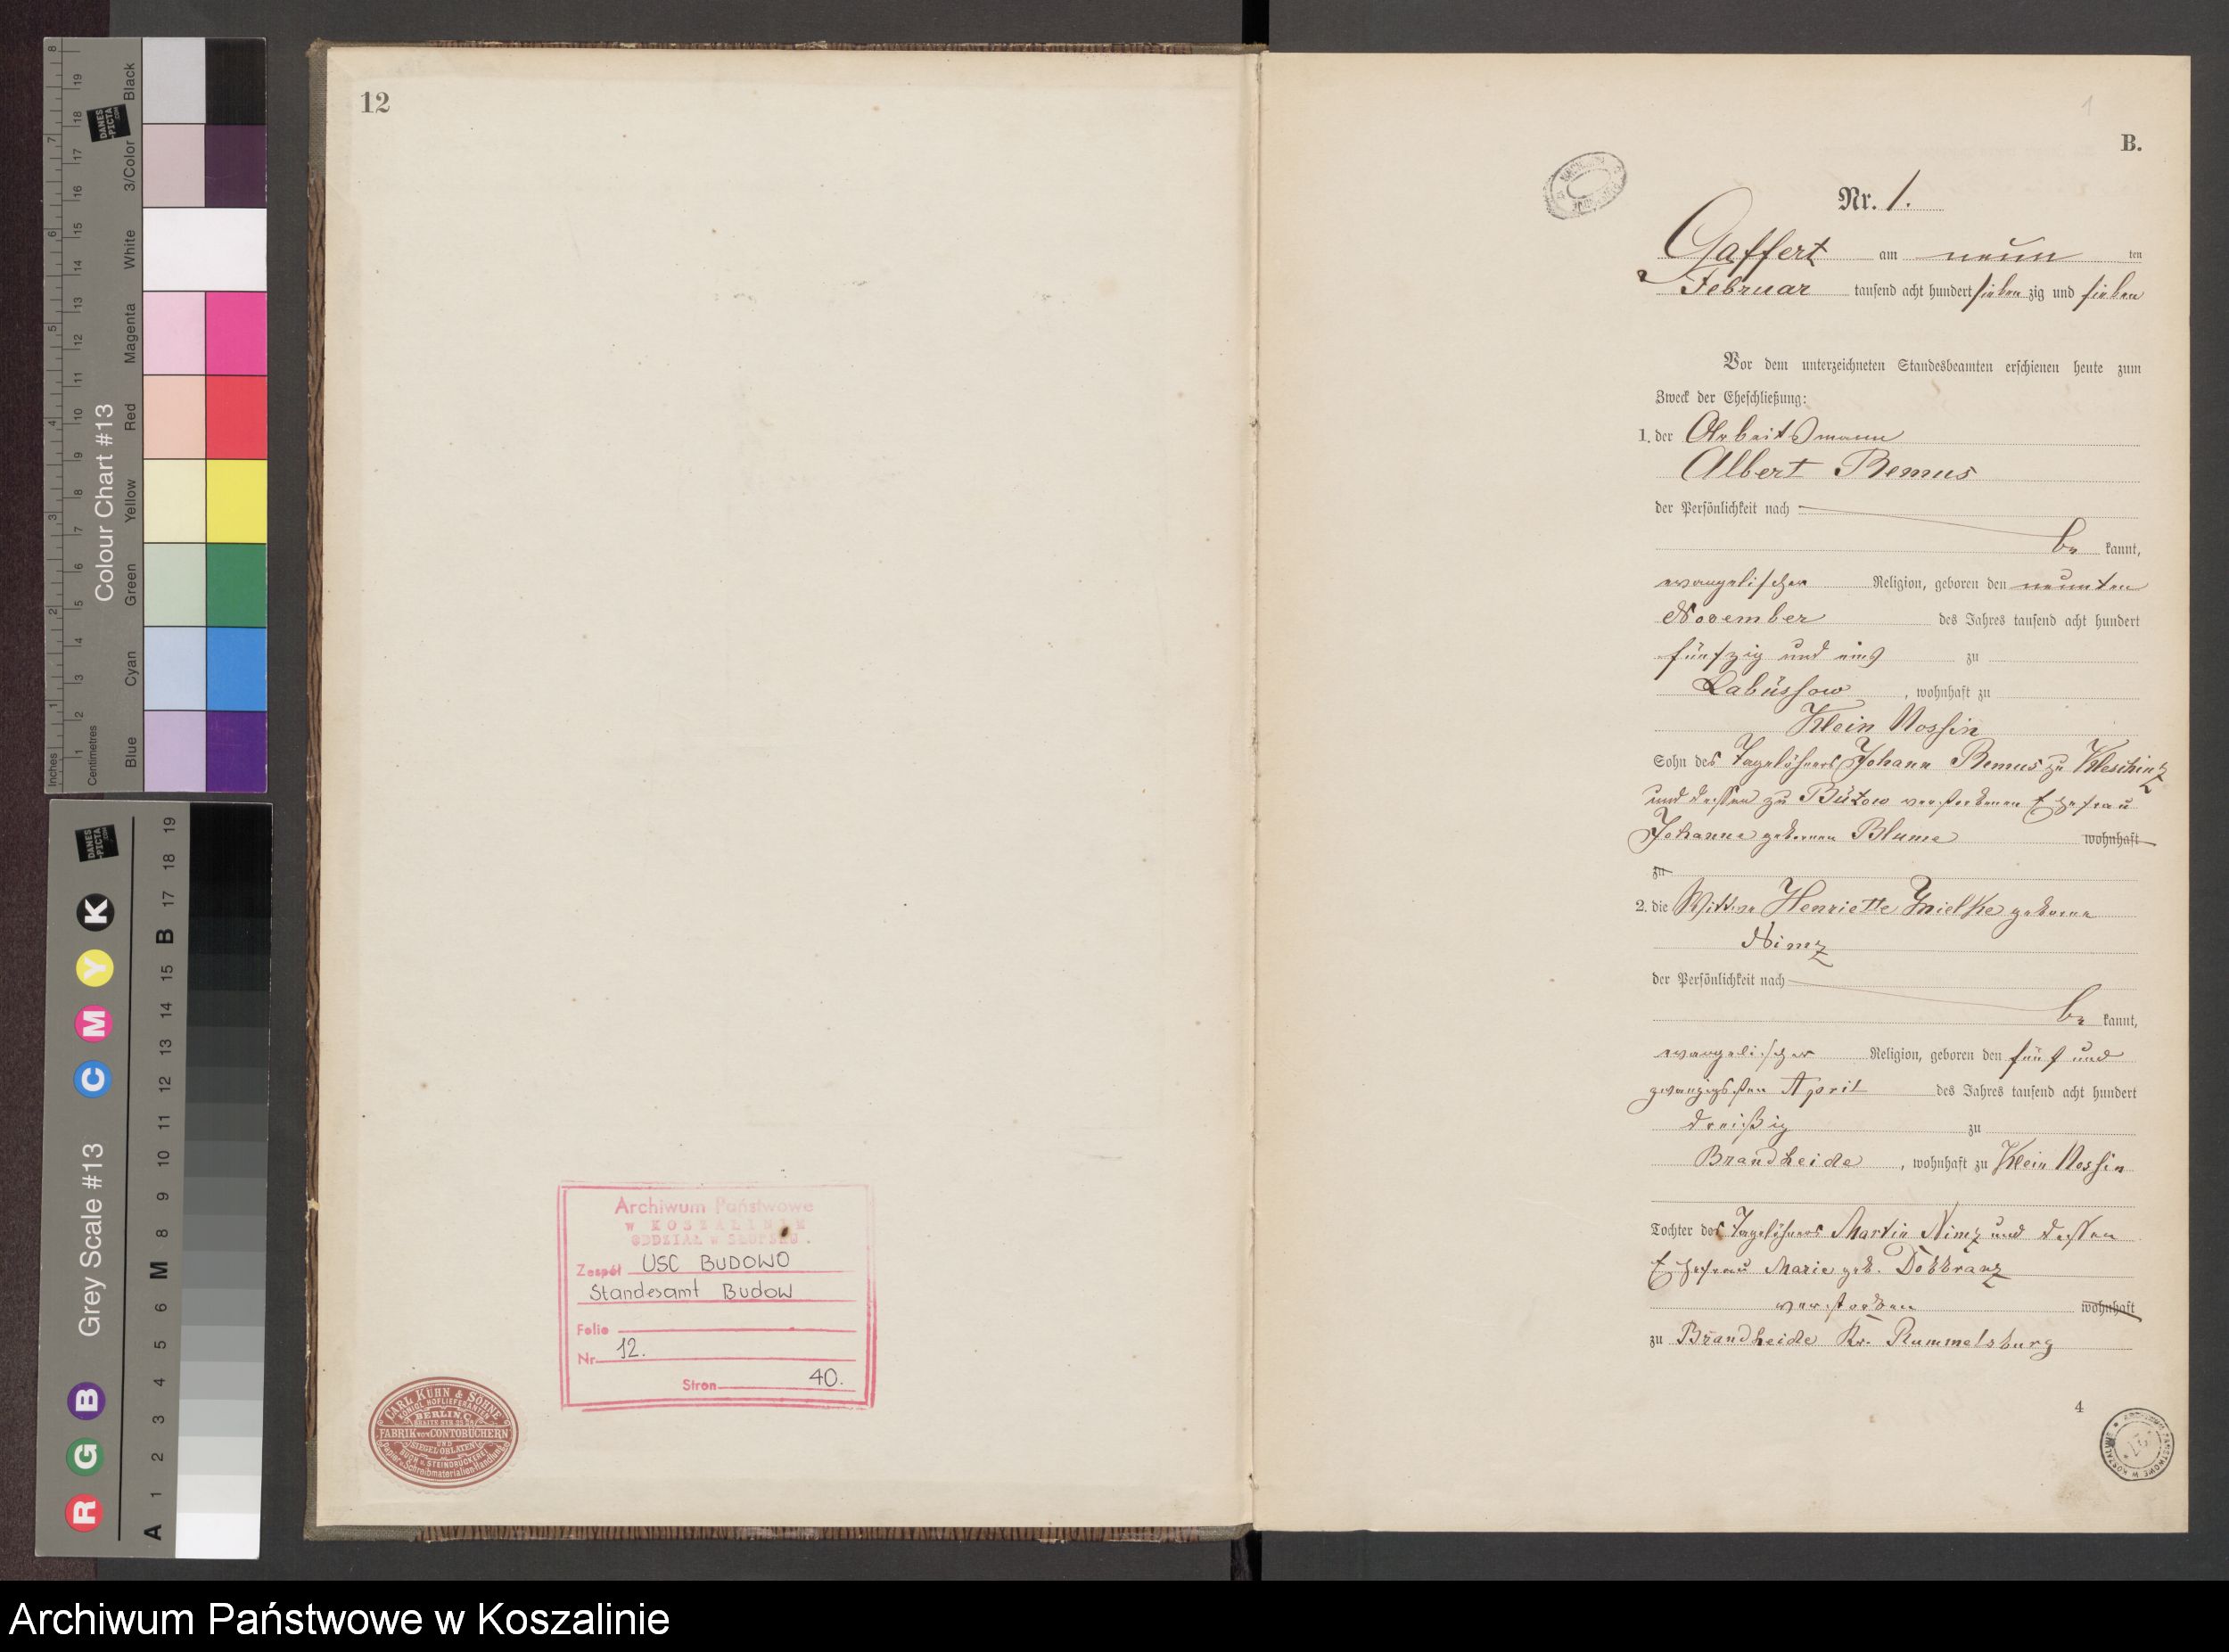 12
Archiwum Państwowe
W KOSZALINIE
ODDZIAŁ W SŁUPSKU.
Zespół USC BUDOWO
Standesamt Budow
Folio
Nr 12.
Stron 40.
CARL KUHN & SÖHNE
KÖNIGL. HOFLIEFERANTEN
BERLIN C.
BREITE STR.
FABRIK VON CONTOBÜCHERN
UND
SIEGEL-OBLATEN
BUCH u. STEINDRUCKEREI
Papier u. Schreibmaterialien-Handlung
1
B.
Nr. 1.
Gaffert am neun ten
Februar tausend acht hundert sieben zig und sieben
Vor dem unterzeichneten Standesbeamten erschienen heute zum
Zweck der Eheschließung:
1. der Arbeitsmann
Albert Remus
der Persönlichkeit nach
be kannt,
evangelischer Religion, geboren den neunten
November des Jahres tausend acht hundert
fünfzig und eins zu
Labüssow, wohnhaft zu
Klein Nossin
Sohn des Tagelöhners Johann Remus zu Kleschinz
und dessen zu Bütow verstorbenen Ehefrau
Johanne geborenen Blume wohnhaft
zu
2. die Wittwe Henriette Mielke geborene
Nimz
der Persönlichkeit nach
be kannt,
evangelischer Religion, geboren den fünf und
zwanzigsten April des Jahres tausend acht hundert
dreißig zu
Brandheide, wohnhaft zu Klein Nossin
Tochter des Tagelöhners Martin Nimz und dessen
Ehefrau Marie geb. Dobbranz
verstorben wohnhaft
zu Brandheide Kr. Rummelsburg
4
ARCHIWUM PAŃSTWOWE W KOSZALINIE
Colour Chart #13
Inches
Centimetres
Blue
Cyan
Green
Yellow
Red
Magenta
White
3/Color
Black
DANES
-PICTA
.COM
Grey Scale #13
R G B C M Y K
A 1 2 3 4 5 6 M 8 9 10 11 12 13 14 15 B 17 18 19
Archiwum Państwowe w Koszalinie